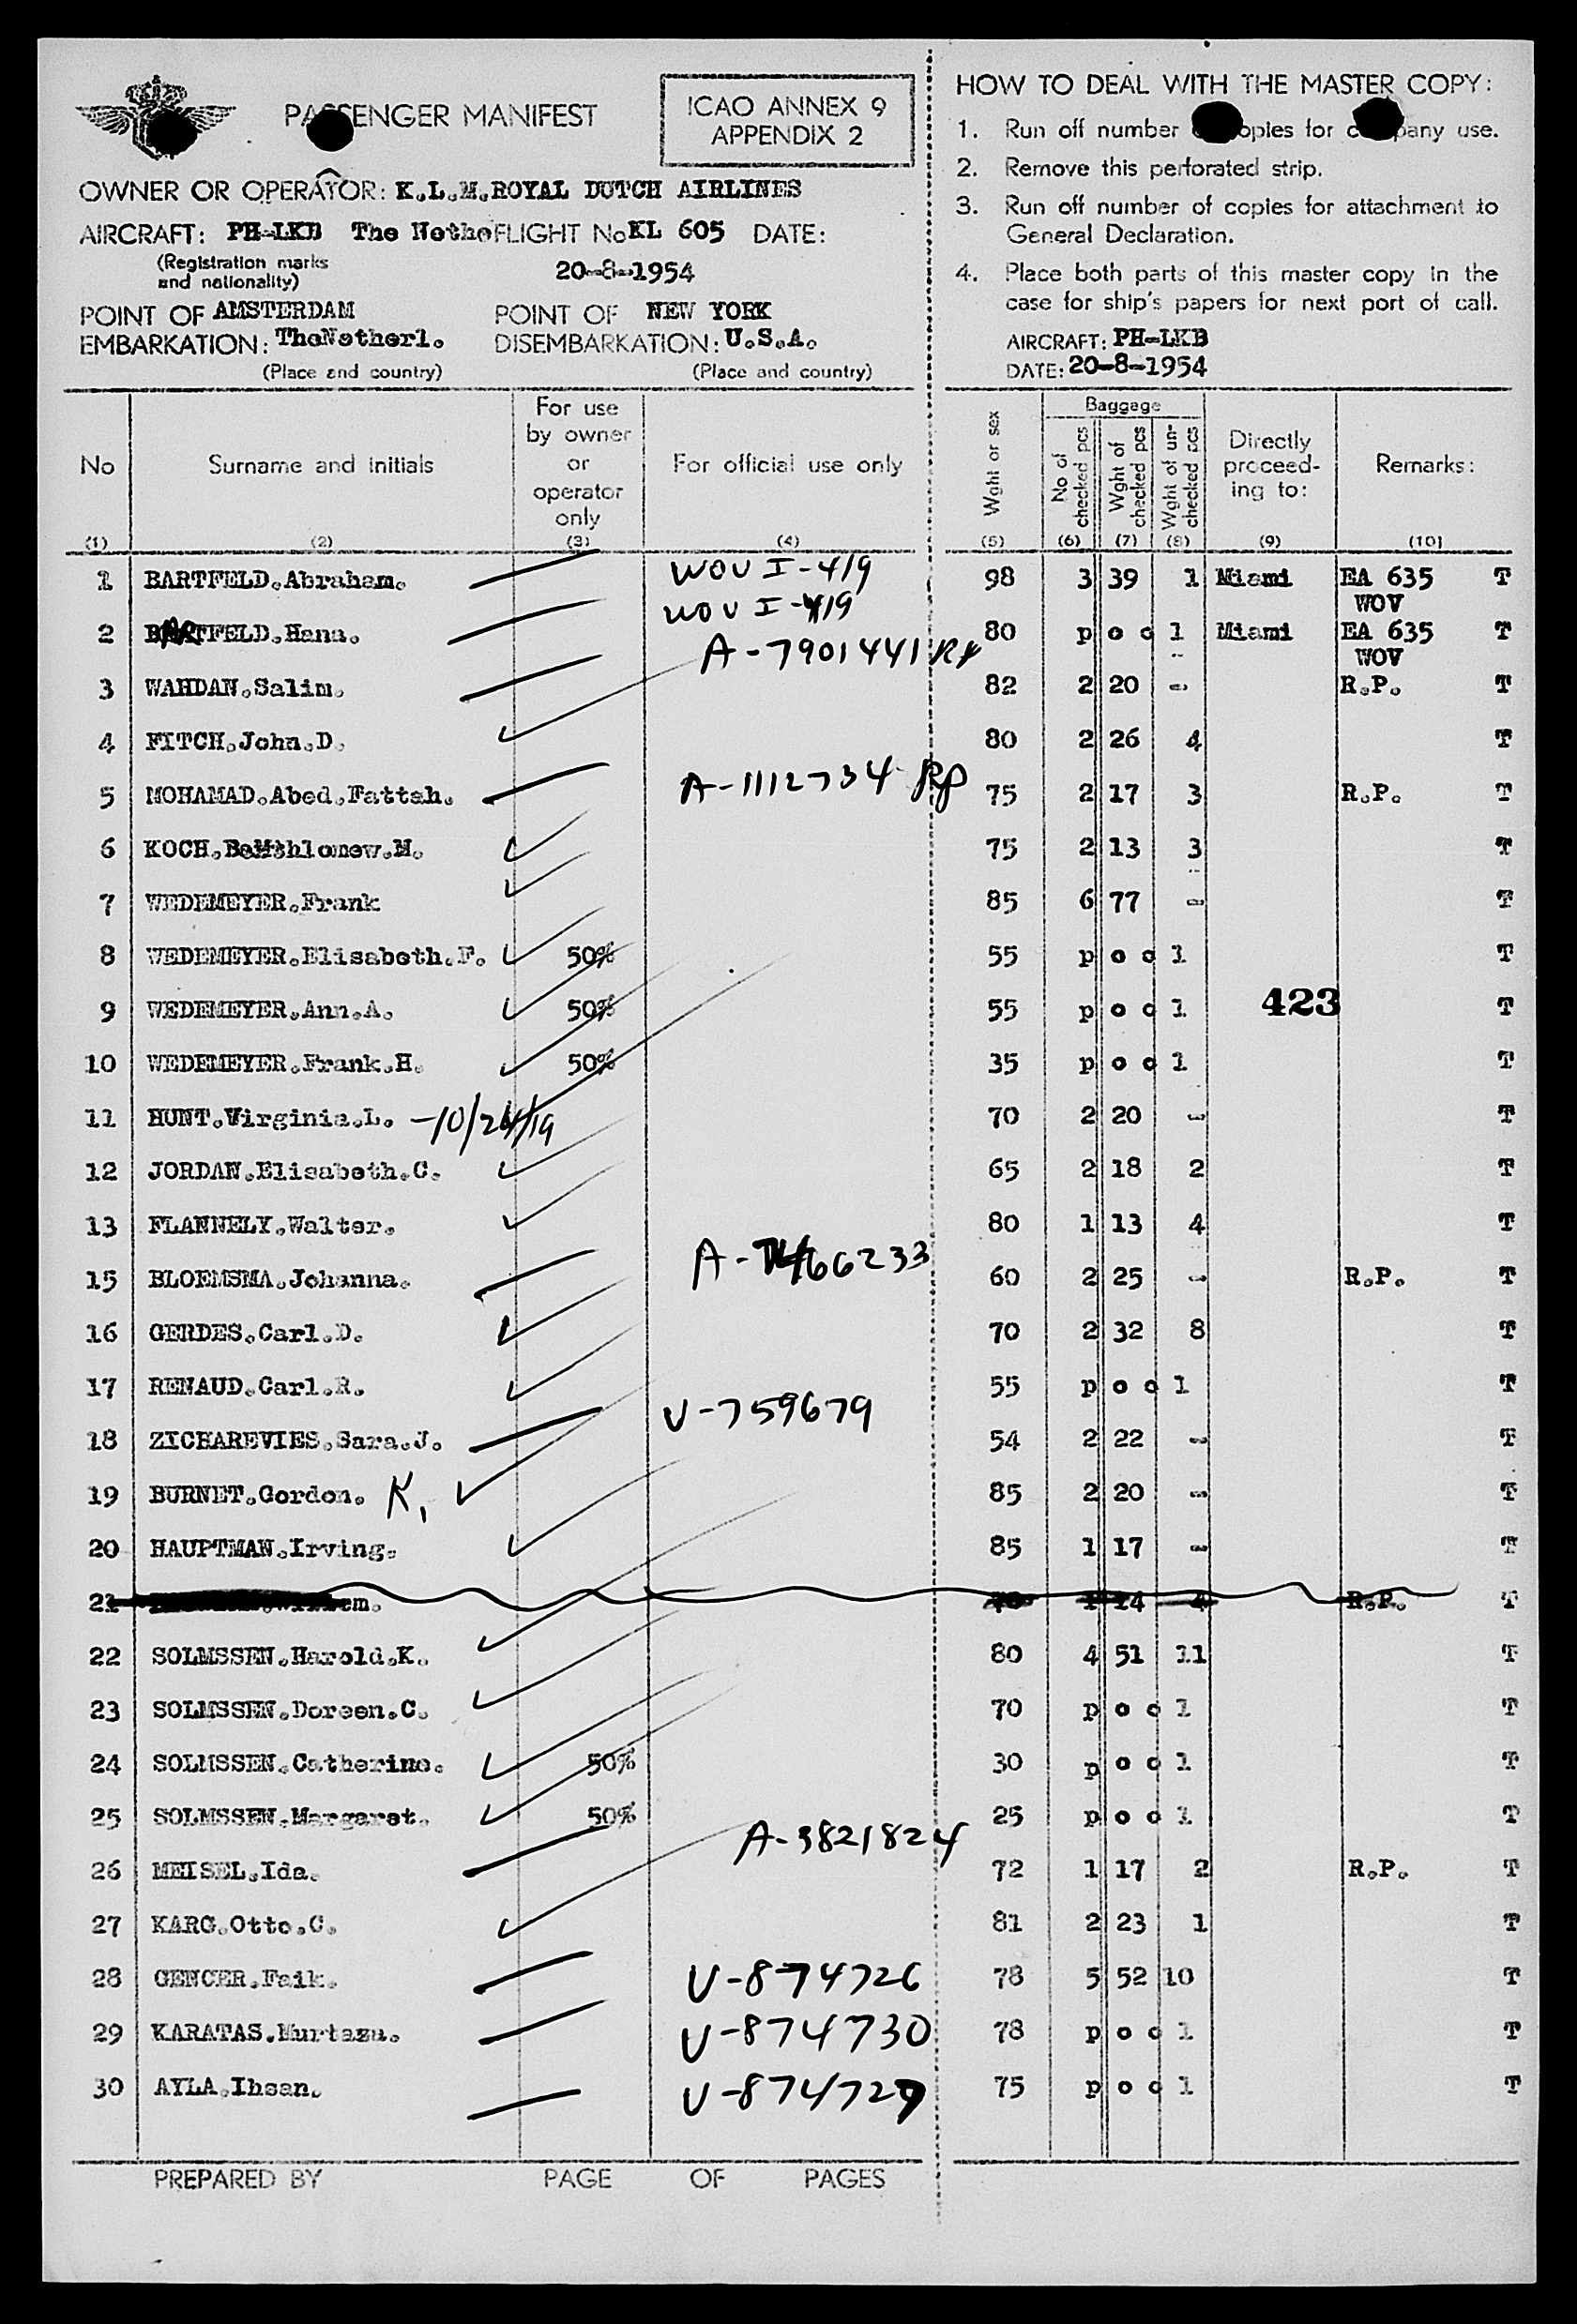 PASSENGER MANIFEST
ICAO ANNEX 9
APPENDIX 2
OWNER OR OPERATOR: K.L.M.ROYAL DUTCH AIRLINES
AIRCRAFT: PH-LKB The Nethe FLIGHT No KL 605 DATE:
(Registration marks
and nationality)
20-8-1954
POINT OF AMSTERDAM POINT OF NEW YORK
EMBARKATION: TheNetherl. DISEMBARKATION: U.S.A.
(Place and country) (Place and country)
HOW TO DEAL WITH THE MASTER COPY:
1. Run off number copies for company use.
2. Remove this perforated strip.
3. Run off number of copies for attachment to
General Declaration.
4. Place both parts of this master copy in the
case for ship's papers for next port of call.
AIRCRAFT: PH-LKB
DATE: 20-8-1954
No Surname and initials For use by owner or operator only For official use only Wght or sex Baggage No of checked pcs Wght of checked pcs Wght of un-checked pcs Directly proceed-ing to: Remarks:
(1) (2) (3) (4) (5) (6) (7) (8) (9) (10)
1 BARTFELD.Abraham. WOV I-419 98 3 39 1 Miami EA 635 T
WOV
2 BARTFELD.Hana. WOV I-419 80 p o o 1 Miami EA 635 T
WOV
3 WAHDAN.Salim. A-7901441 RP 82 2 20 - R.P. T
4 FITCH.John.D. 80 2 26 4 T
5 MOHAMAD.Abed.Fattah. A-1112734 RP 75 2 17 3 R.P. T
6 KOCH. 75 2 13 3 T
7 WEDEMEYER.Frank 85 6 77 - T
8 WEDEMEYER.Elisabeth.F. 50% 55 p o o 1 T
9 WEDEMEYER.Ann.A. 50% 55 p o o 1 423 T
10 WEDEMEYER.Frank.H. 50% 35 p o o 1 T
11 HUNT.Virginia.L. -10/24/19 70 2 20 - T
12 JORDAN.Elisabeth.C. 65 2 18 2 T
13 FLANNELY.Walter. 80 1 13 4 T
15 BLOEMSMA.Johanna. 60 2 25 - R.P. T
16 GERDES.Carl.D. 70 2 32 8 T
17 RENAUD.Carl.R. 55 p o o 1 T
18 ZICHAREVIES.Sara.J. V-759679 54 2 22 - T
19 BURNET.Gordon. K. 85 2 20 - T
20 HAUPTMAN.Irving. 85 1 17 - T
21 1 14 4 R.P. T
22 SOLMSSEN.Harold.K. 80 4 51 11 T
23 SOLMSSEN.Doreen.C. 70 p o o 1 T
24 SOLMSSEN.Catherine. 50% 30 p o o 1 T
25 SOLMSSEN.Margaret. 50% 25 p o o 1 T
26 MEISEL.Ida. A-3821824 72 1 17 2 R.P. T
27 KARG.Otto.C. 81 2 23 1 T
28 GENCER.Faik. V-874726 78 5 52 10 T
29 KARATAS.Murtaza. V-874730 78 p o o 1 T
30 AYLA.Ihsan. V-874729 75 p o o 1 T
PREPARED BY PAGE OF PAGES